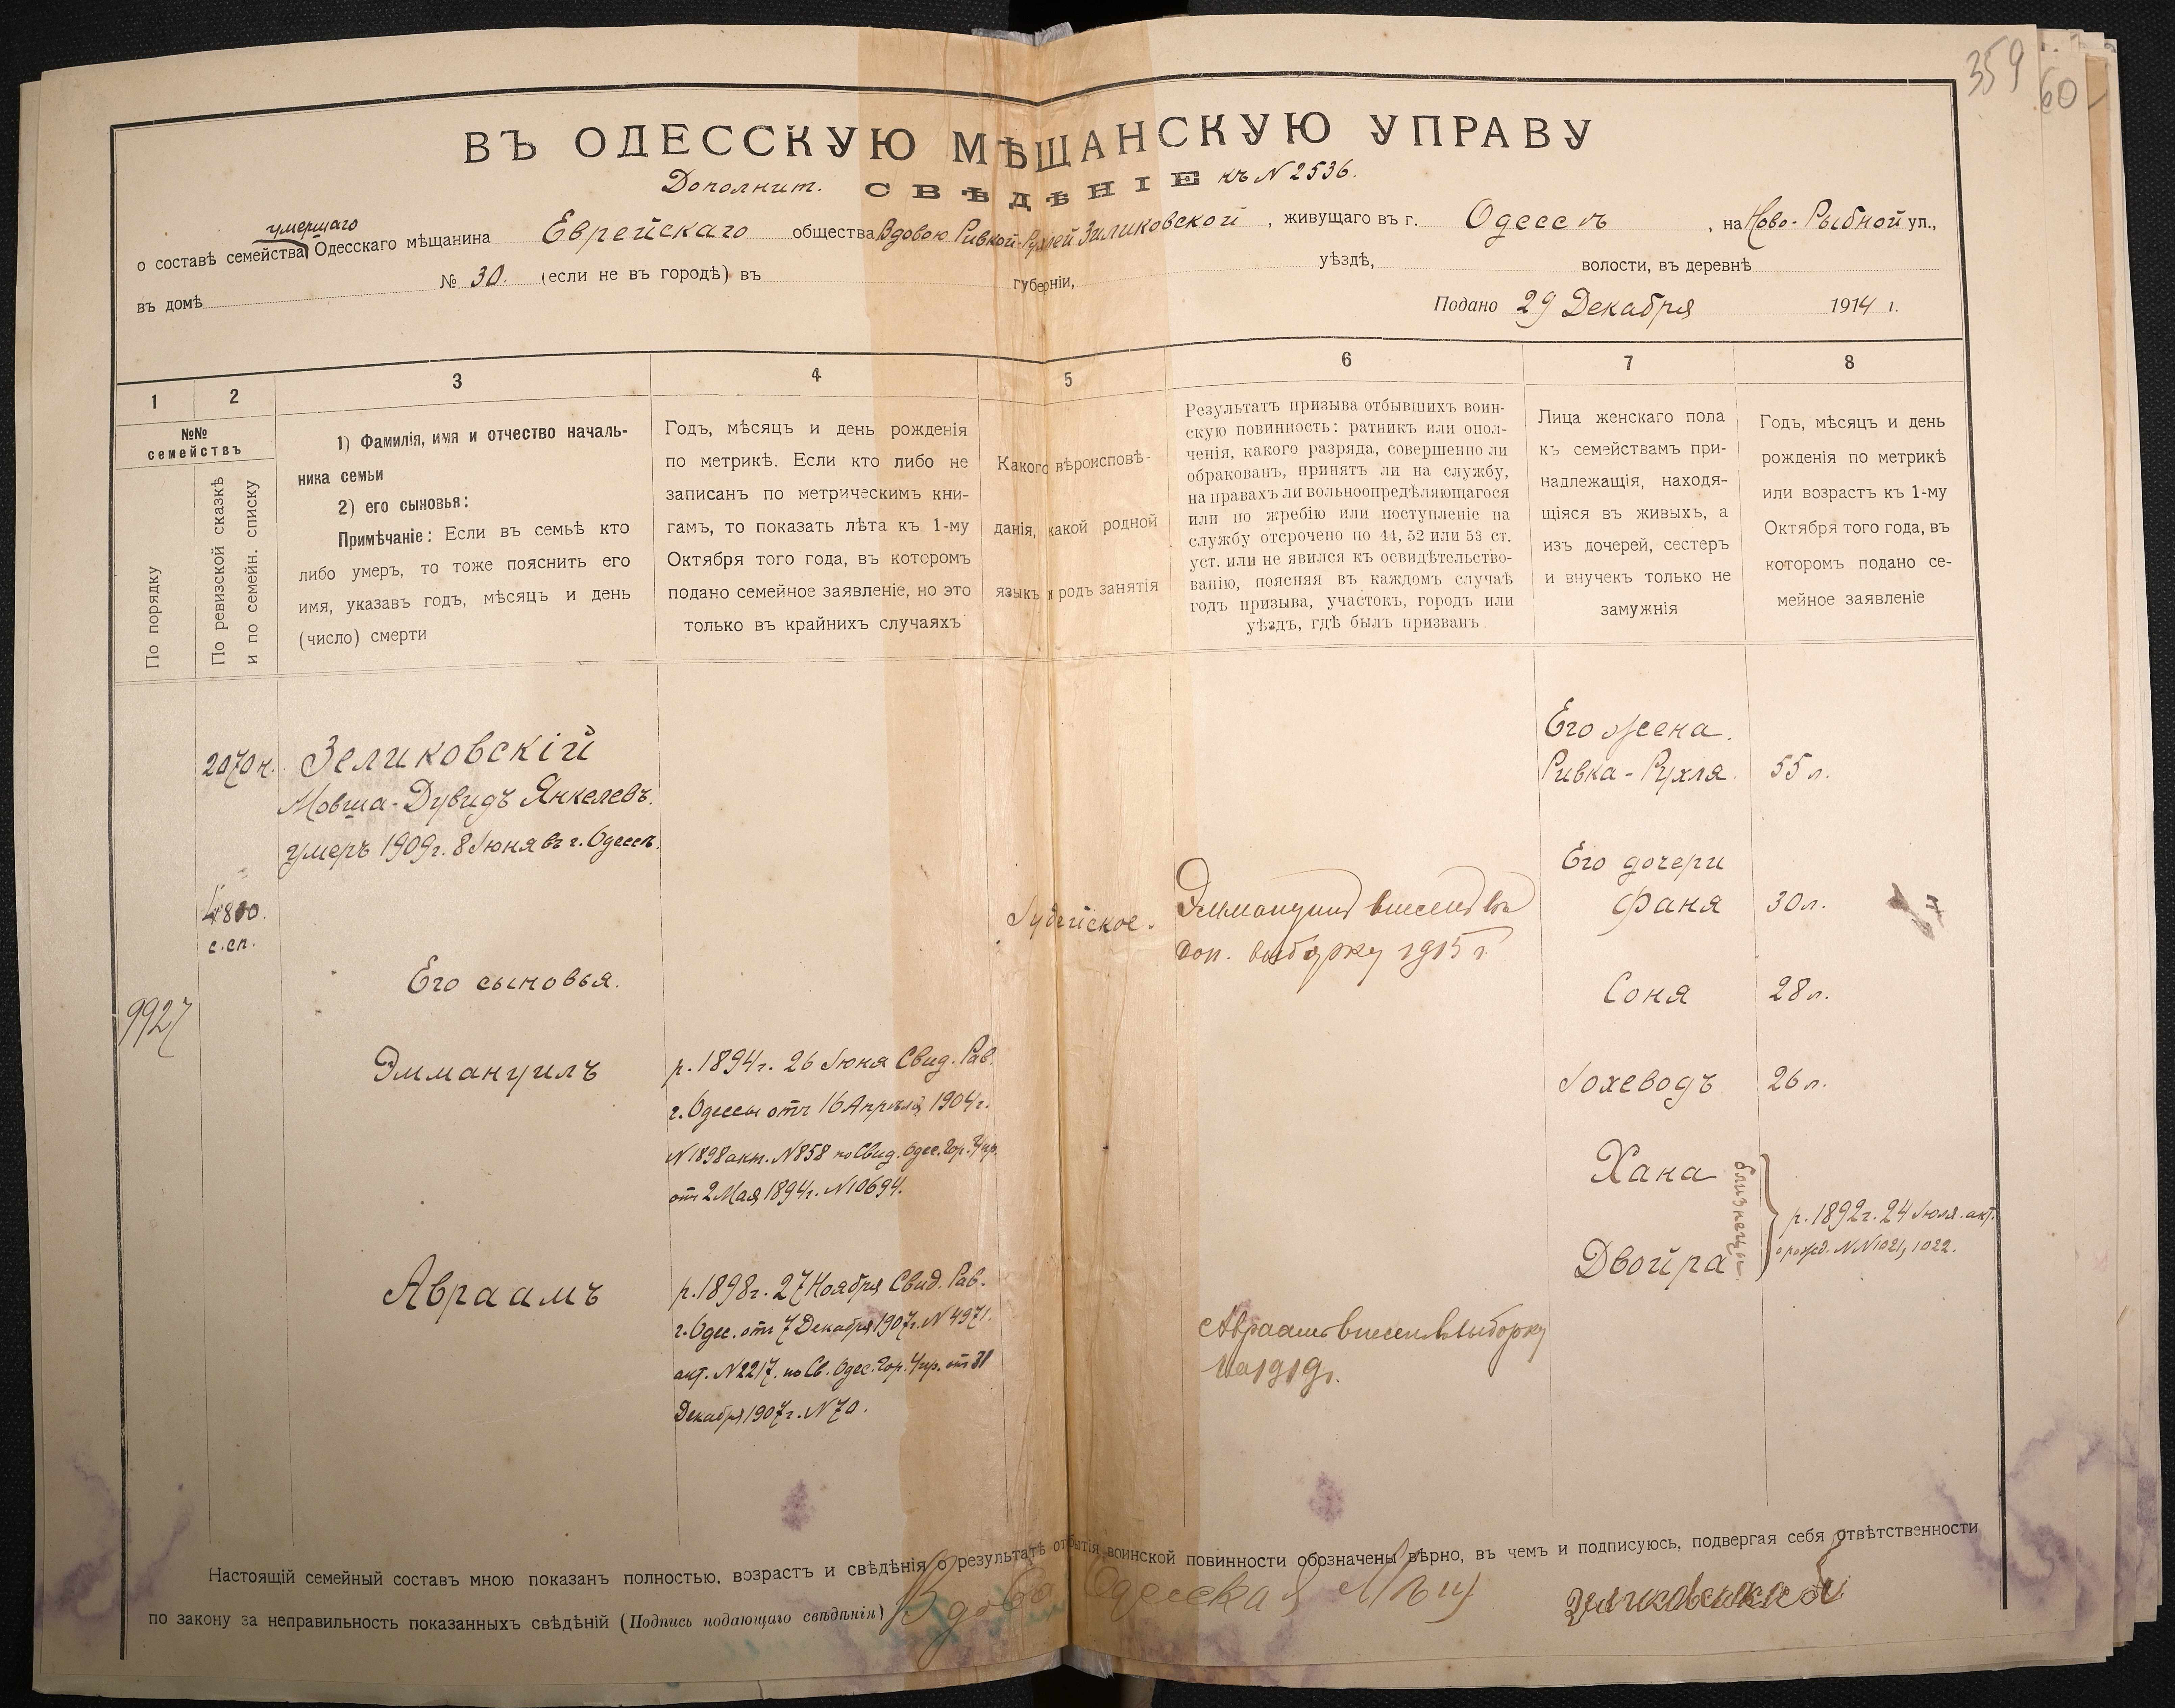 359
60
ВЪ ОДЕССКУЮ МѢЩАНСКУЮ УПРАВУ
Дополнит. СВѢДѢНІЕ къ N 2536.
умершаго
о составѣ семейства Одесскаго мѣщанина Еврейскаго общества Вдовою Ривкой-Рухлей Зиликовской, живущаго въ г. Одессѣ, на Ново-Рыбной ул.,
въ домѣ № 30. (если не въ городѣ) въ губерніи, уѣздѣ, волости, въ деревнѣ
Подано 29 Декабря 1914 г.
1
2
3
4
5
6
7
8
№№
семействъ
По порядку
По ревизской сказкѣ
и по семейн. списку
1) Фамилія, имя и отчество началь-
ника семьи
2) его сыновья:
Примѣчаніе: Если въ семьѣ кто
либо умеръ, то тоже пояснить его
имя, указавъ годъ, мѣсяцъ и день
(число) смерти
Годъ, мѣсяцъ и день рожденія
по метрикѣ. Если кто либо не
записанъ по метрическимъ кни-
гамъ, то показать лѣта къ 1-му
Октября того года, въ которомъ
подано семейное заявленіе, но это
только въ крайнихъ случаяхъ
Какого вѣроисповѣ-
данія, какой родной
языкъ и родъ занятія
Результатъ призыва отбывшихъ воин-
скую повинность: ратникъ или опол-
ченія, какого разряда, совершенно ли
обракованъ, принятъ ли на службу,
на правахъ ли вольноопредѣляющагося
или по жребію или поступленіе на
службу отсрочено по 44, 52 или 53 ст.
уст. или не явился къ освидѣтельство-
ванію, поясняя въ каждомъ случаѣ
годъ призыва, участокъ, городъ или
уѣздъ, гдѣ былъ призванъ
Лица женскаго пола
къ семействамъ при-
надлежащія, находя-
щіяся въ живыхъ, а
изъ дочерей, сестеръ
и внучекъ только не
замужнія
Годъ, мѣсяцъ и день
рожденія по метрикѣ
или возрастъ къ 1-му
Октября того года, въ
которомъ подано се-
мейное заявленіе
2070 н.
Зеликовскій
Мовша-Дувидъ Янкелевъ.
умеръ 1909 г. 8 Іюня въ г. Одессѣ.
с.сп.
9927
Его сыновья.
Эммануилъ
р. 1894 г. 26 Іюня Свид. Рав.
г. Одессы отъ 16 Апрѣля 1904 г.
N 1898 акт. N 858 по Свид. Одес. Гор. Упр.
отъ 2 Мая 1894 г. N 10694.
Авраамъ
р. 1898 г. 27 Ноября Свид. Рав.
г. Одес. отъ 7 Декабря 1907 г. N 4971.
акт. N 2217. по Св. Одес. Гор. Упр. отъ 31
Декабря 1907 г. N 70.
Іудейское.
Эммануилъ внесенъ въ
доп. выборку 1915 г.
Авраамъ внесенъ въ выборку
на 1919 г.
Его жена.
Ривка-Рухля. 55 л.
Его дочери
Фаня 30 л.
Соня 28 л.
Іохеводъ 26 л.
Хана
Двойра
близнецы
р. 1892 г. 24 Іюля. акт.
о рожд. NN 1021, 1022.
Настоящій семейный составъ мною показанъ полностью, возрастъ и свѣдѣнія о результатѣ отбытія воинской повинности обозначены вѣрно, въ чемъ и подписуюсь, подвергая себя отвѣтственности
по закону за неправильность показанныхъ свѣдѣній (Подпись подающаго свѣдѣнія) Вдова Одесская